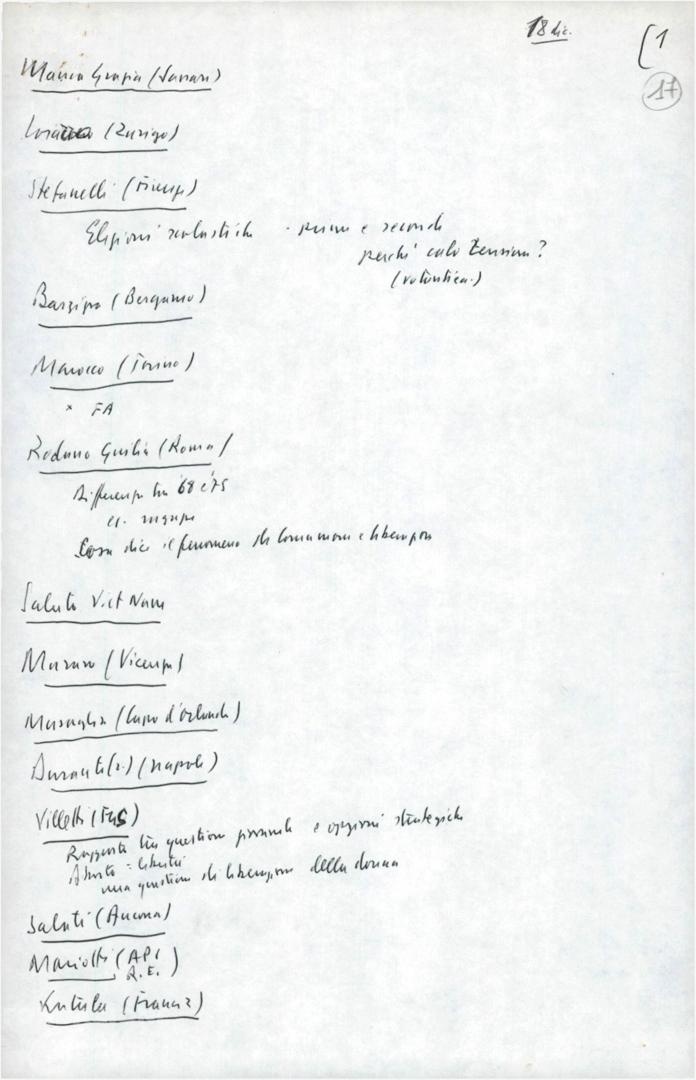 18 dic.
[1
17
Maria Grazia (Sassari)
(Zurigo)
Stefanelli (Firenze)
Elezioni scolastiche - prime e seconde
perché calo tensione?
(volontica.)
Barzipa (Bergamo)
Marocco (Torino)
x FA
Rodano Giulia (Roma)
Differenza tra '68 e '75
es. ragazze
Cosa dice il fenomeno di Comunione e liberazione
Saluto Viet Nam
Muraro (Vicenza)
Maraglia (Capo d'Orlando)
Durante (Napoli)
Villetti (FGS)
Rapporto tra questione giovanile e opzioni strategiche
Aborto = libertà
una questione di liberazione della donna
Saluti (Ancona)
Mariotti (API
R.E.)
(Francia)